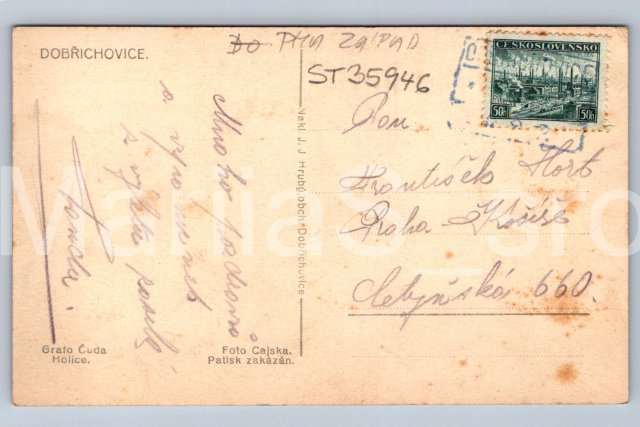 DOBŘICHOVICE.
Do PHA ZÁPAD
ST35946
ČESKOSLOVENSKO
50h 50h
Mnoho pozdravů
a vzpomínek
z výletu posílá
Nakl. J. J. Hrubý, obch. Dobřichovice
Pan
František Hort
Praha Košíře
660.
Grafo Čuda
Holice.
Foto Cajska.
Patisk zakázán.